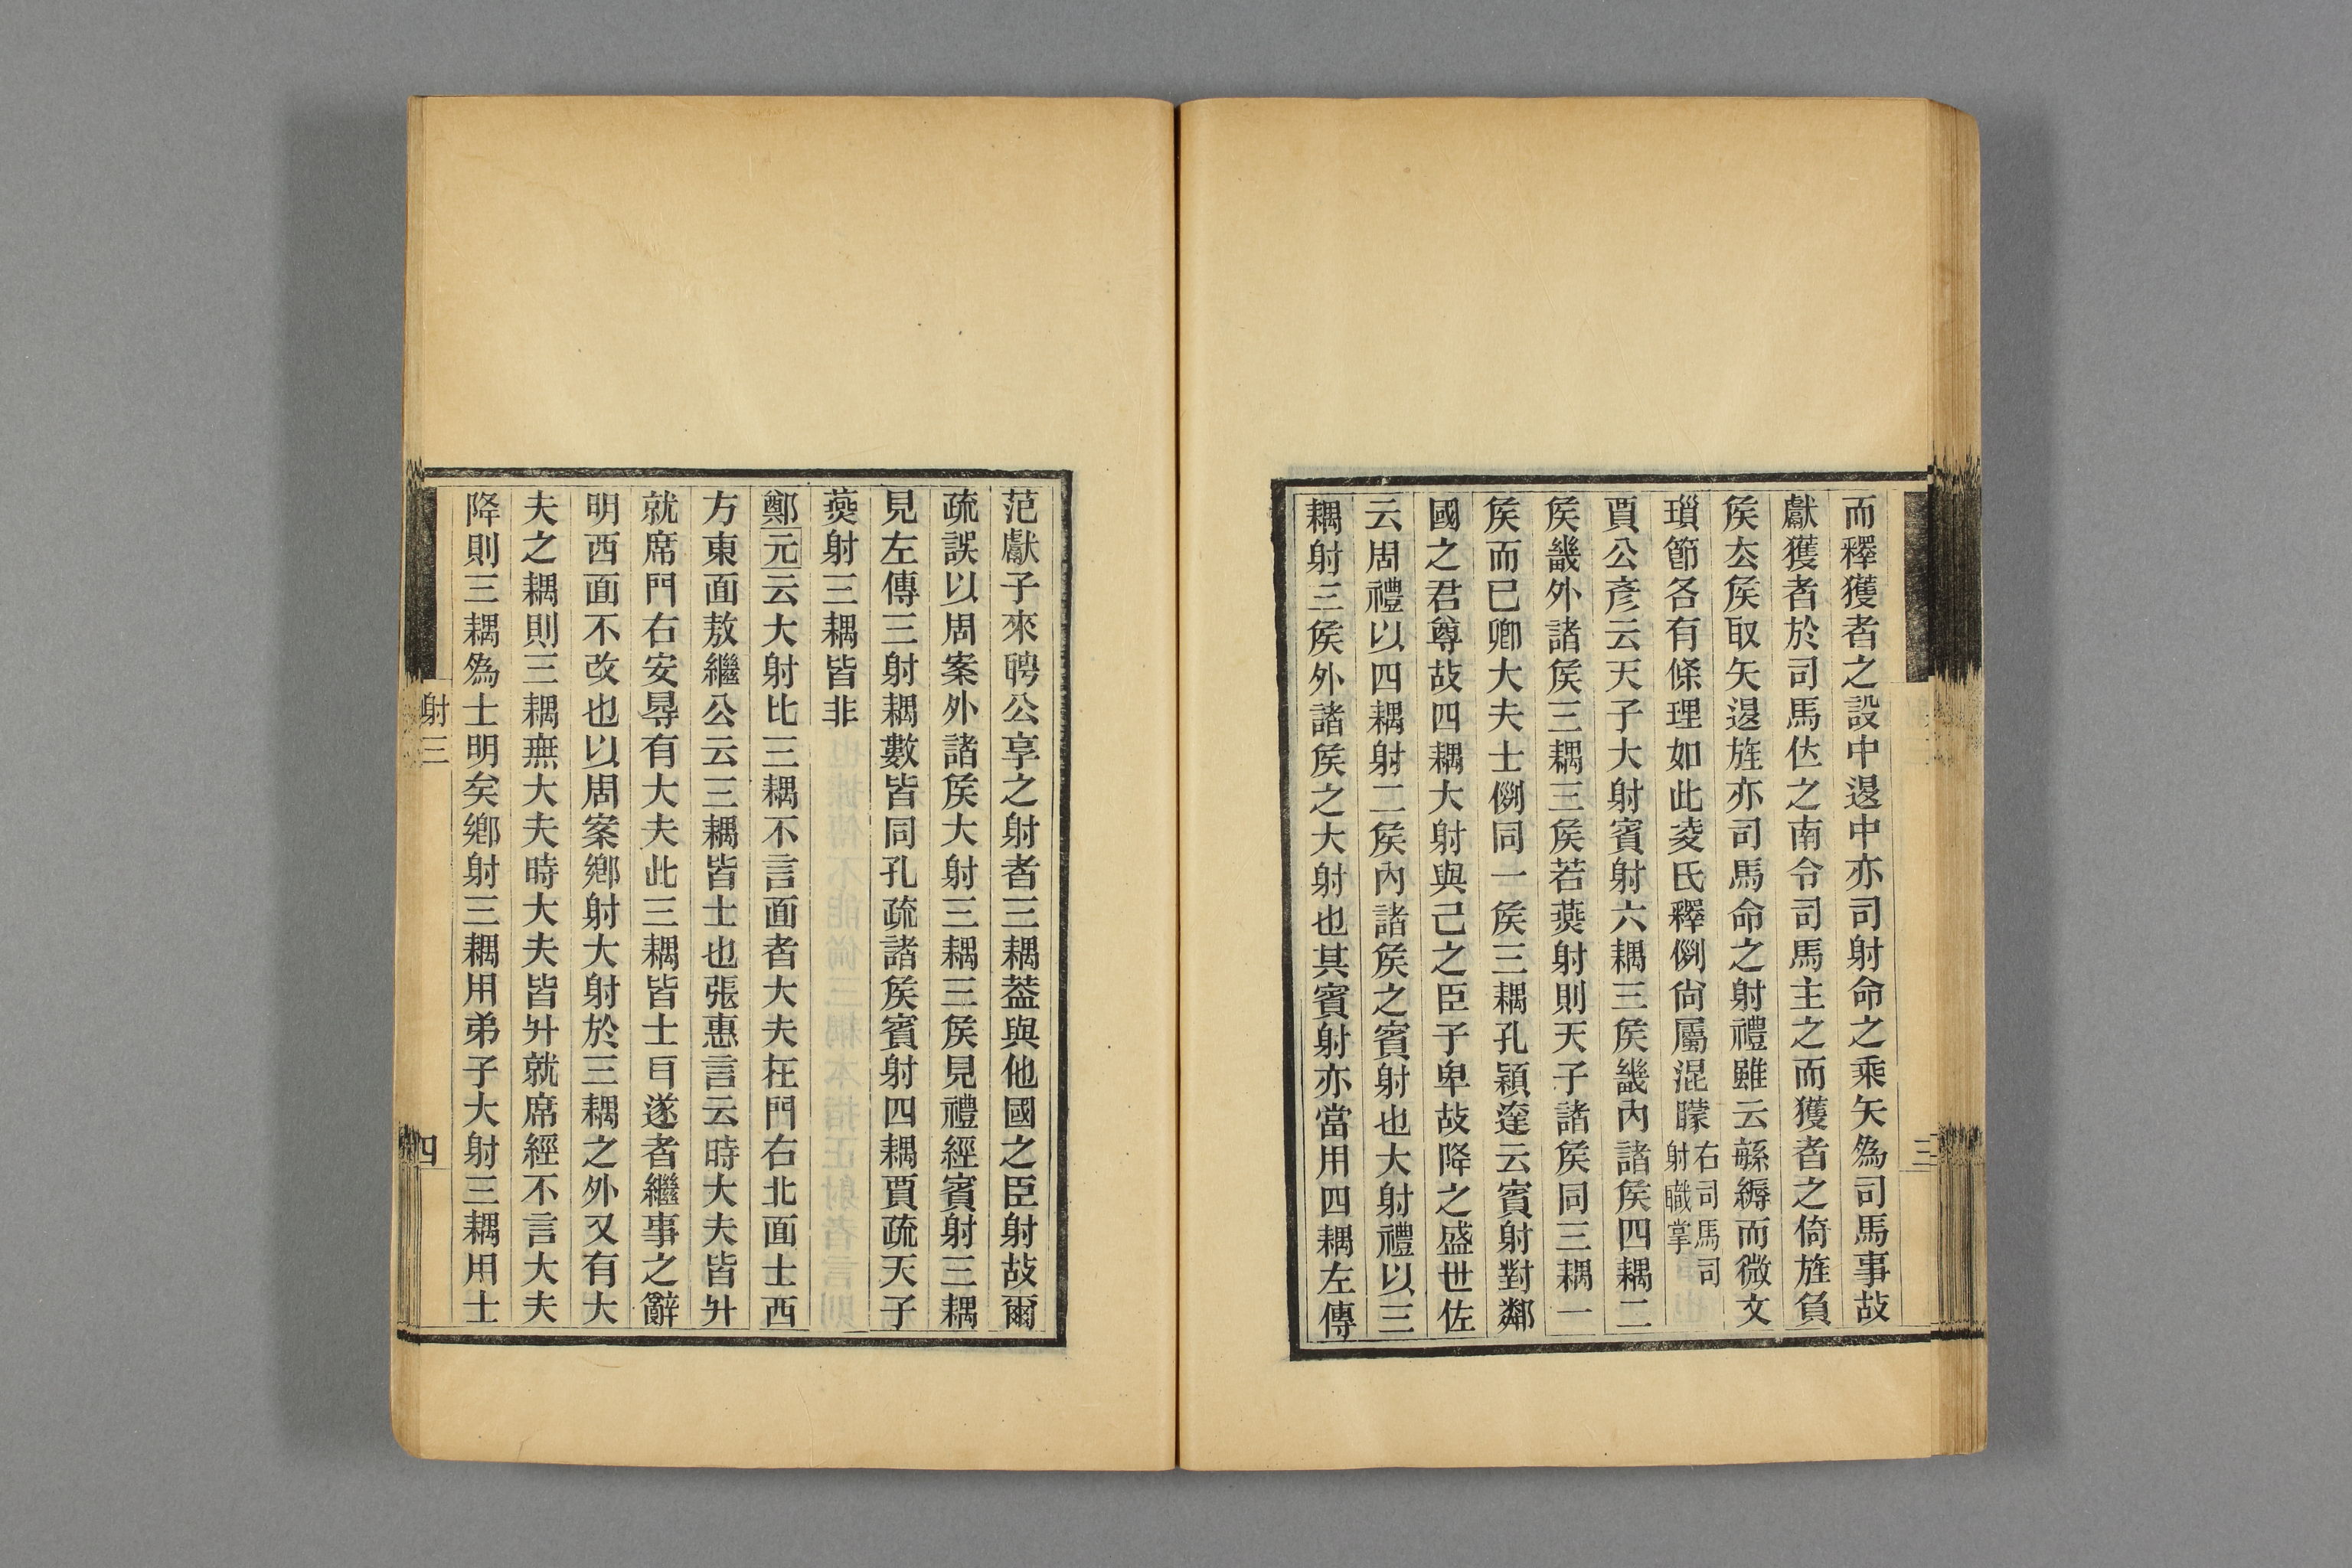 而釋獲者之設中退中亦司射命之乘矢爲司馬事故
獻獲者於司馬位之南令司馬主之而獲者之倚旌負
矦去矦取矢退旌亦司馬命之射禮雖云緐縟而微文
瑣節各有條理如此凌氏釋例尙屬混矇右司馬司射職掌
賈公彥云天子大射賓射六耦三矦畿內諸矦四耦二
矦畿外諸矦三耦三矦若燕射則天子諸矦同三耦一
矦而已卿大夫士例同一矦三耦孔穎達云賓射對鄰
國之君尊故四耦大射與己之臣子卑故降之盛世佐
云周禮以四耦射二矦內諸矦之賓射也大射禮以三
耦射三矦外諸矦之大射也其賓射亦當用四耦左傳
三
范獻子來聘公享之射者三耦葢與他國之臣射故爾
疏誤以周案外諸矦大射三耦三矦見禮經賓射三耦
見左傳三射耦數皆同孔疏諸矦賓射四耦賈疏天子
燕射三耦皆非
鄭元云大射比三耦不言面者大夫在門右北面士西
方東面敖繼公云三耦皆士也張惠言云時大夫皆升
就席門右安得有大夫此三耦皆士㠯遂者繼事之辭
明西面不改也以周案鄉射大射於三耦之外又有大
夫之耦則三耦無大夫時大夫皆升就席經不言大夫
降則三耦爲士明矣鄉射三耦用弟子大射三耦用士
射三
四